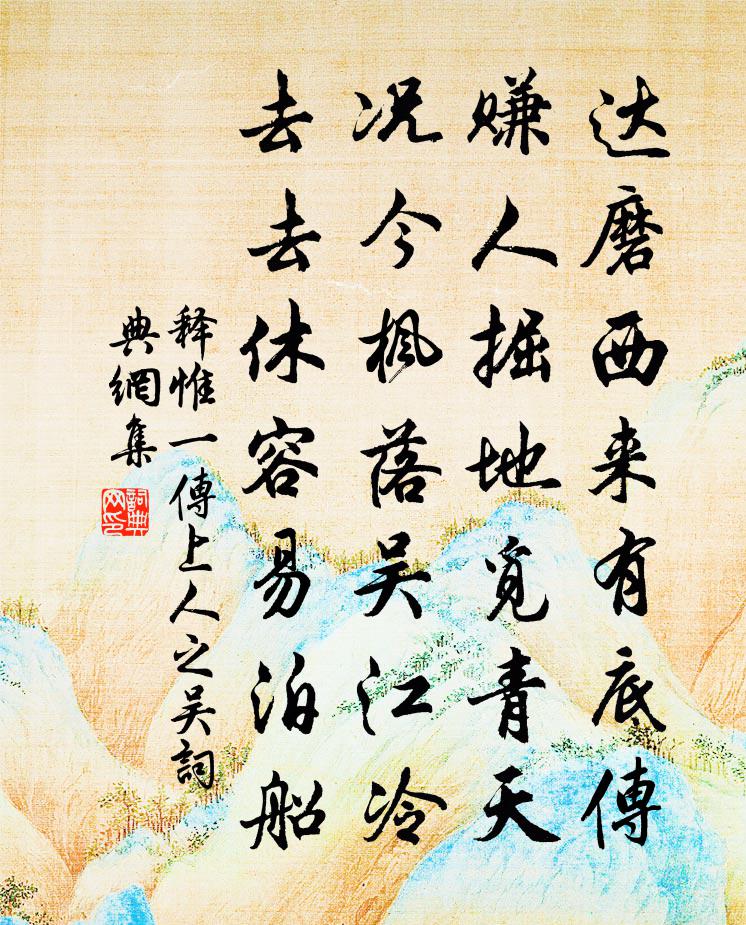 达磨西来有底傳
赚人掘地觅青天
况今枫落吴江冷
去去休容易泊船
释惟一傳上人之吴詞
典網集
詞典網印